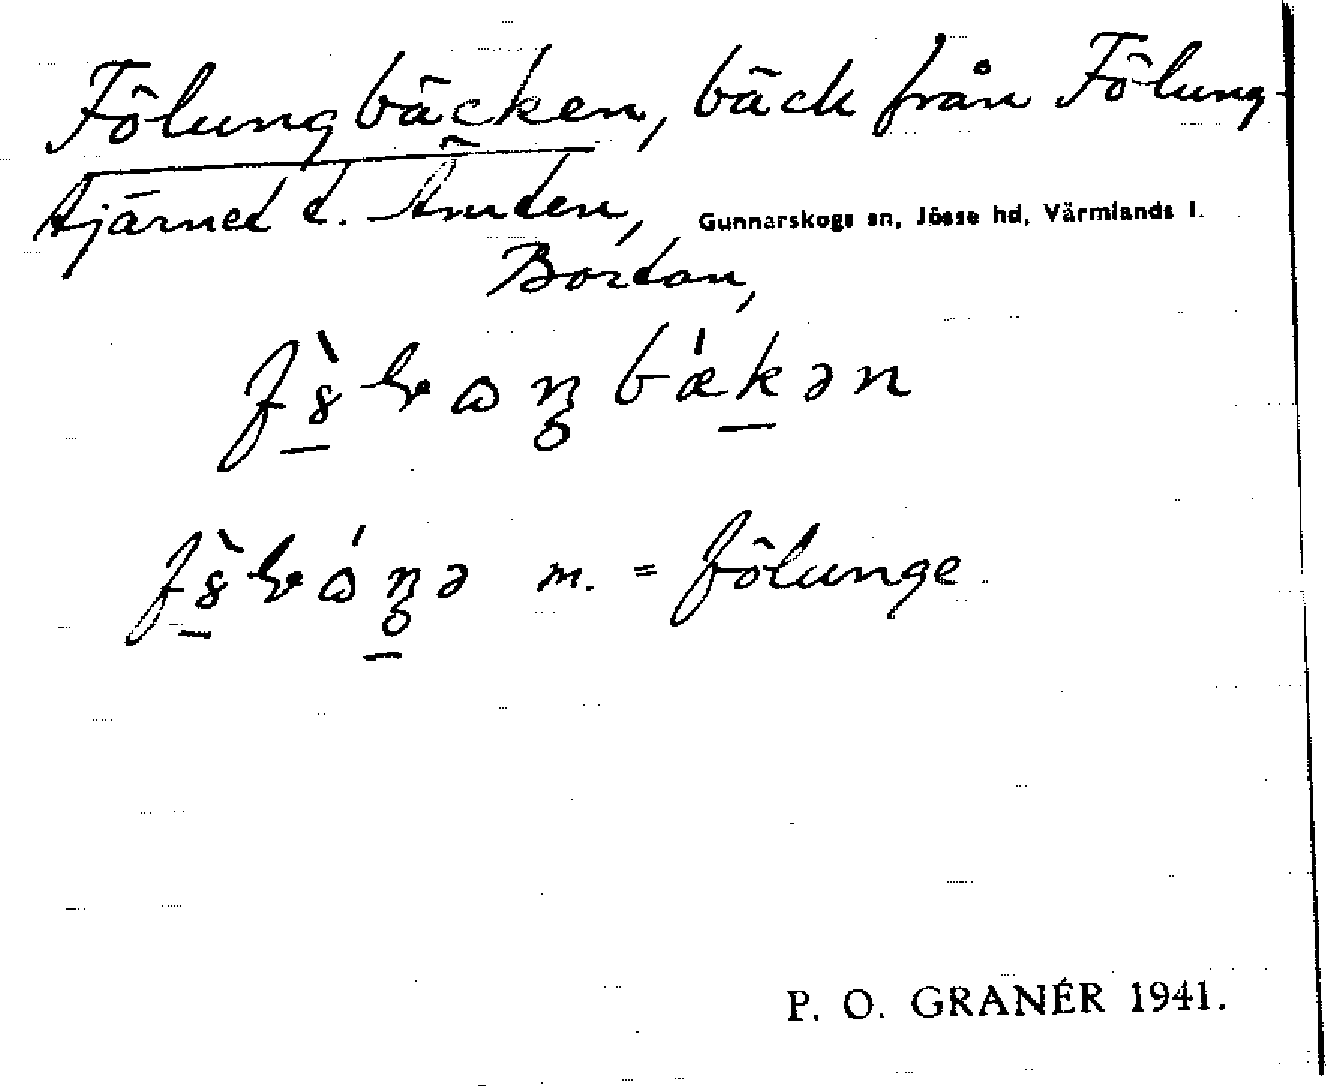 Fölungbäcken, bäck från Fölung-
tjärnet t. Ämten, Gunnarskogs sn, Jösse hd, Värmlands l.
Bortan,
m. = fölunge.
P. O. GRANÉR 1941.